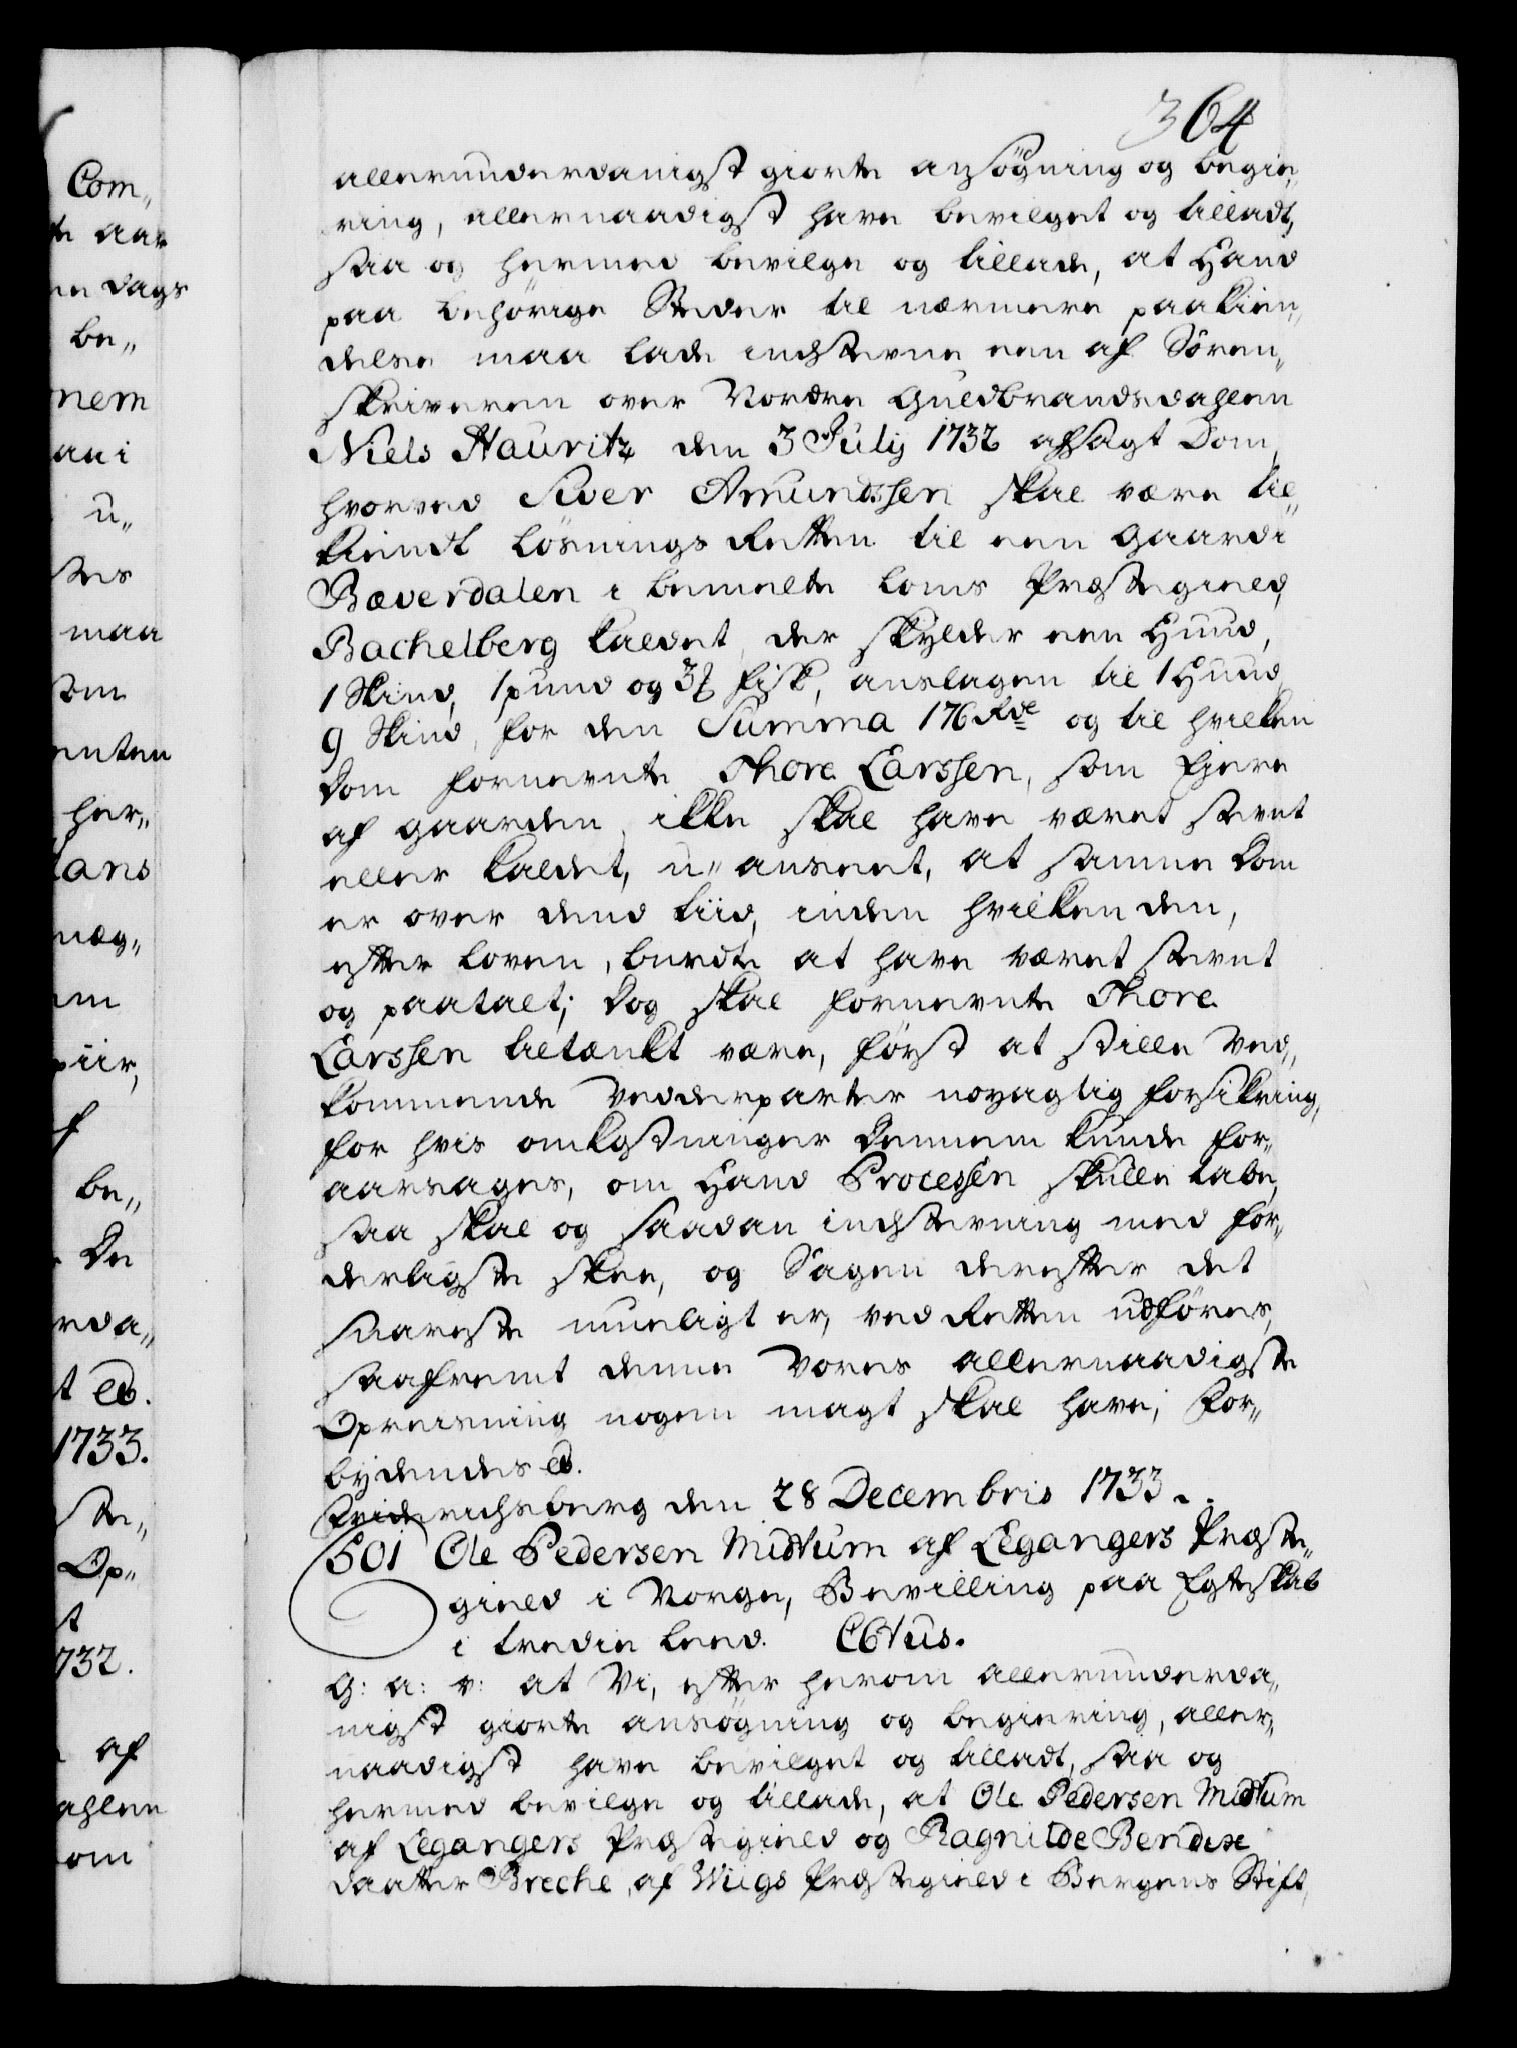 364
allerunderdanigst giorte ansögning og begie„
ring, allernaadigst have bevilget og tilladt,
saa og hermed bevilge og tillade, at Hand
paa behörige Steder til nærmere paakien„
delse maa lade indstevne een af Sören„
skriveren over Nordre Guldbrandsdahlen
Niels Hauritz den 3 Julij 1732 afsagt Dom,
hvorved Siver Amundssen skal være til„
kiendt Lösnings Retten til een Gaard i
Bæverdalen i bemelte Loms Præstegield,
Bachelberg kaldet, der skylder een Huud,
1 Skind, 1 pund og 3 ℔ fisk, anslagen til 1 Huud
9 Skind, for den Summa 176 Rdr og til hvilken
Dom fornevnte Thore Larssen, som Ejere
af gaarden, ikke skal have været stevnt
eller kaldet, u„anseet, at samme Dom
er over dend tiid, inden hvilken den,
efter loven, burdte at have været stevnt
og paatalt; Dog skal fornevnte Thore
Larssen tiltænkt være, först at stille Ved„
kommende Vedderparter noyagtig forsikring,
for hvis omkostninger Dennem kunde for„
aarsages, om Hand Processen skulle tabe,
saa skal og saadan indstevning med for„
derligste skee, og Sagen derefter det
snareste mueligt er, ved Retten udföres,
saafremt denne Vores allernaadigste
Opreisning nogen magt skal have; For„
bydendes &c.
Friderichsberg den 28 Decembris 1733.
501 Ole Pedersen Midtum af Legangers Præste„
gield i Norge, Bevilling paa Egteskab
i tredie Leed. CGtus.
G: a: v: at Vi, efter herom allerunderda„
nigst giorte ansögning og begiering, aller„
naadigst have bevilget og tilladt, saa og
hermed bevilge og tillade, at Ole Pedersen Midtum
af Legangers Præstegield og Ragnilde Bendix
daatter Breche, af Wiigs Præstegield i Bergens Stift,